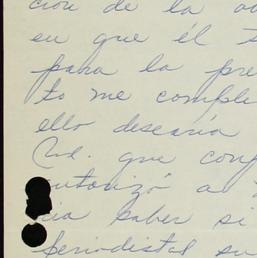 ción de la
en que él
para la pre
to me comple
ello desearía
Ud. que con
autorizó a
cia saber si
periodistas su